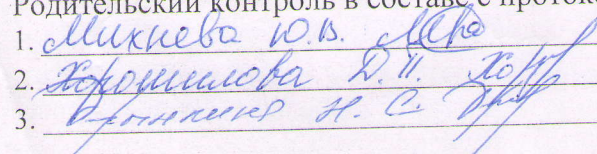 Родительский контроль в составе с проток
1. Михнева Ю.В.
2. Хорошилова Д.П.
3. Н. С.